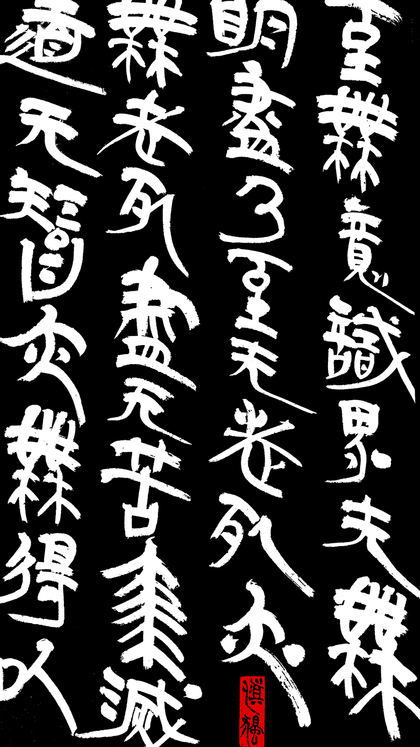 至無意識界无無
明盡乃至无老死亦
無老死盡无苦集滅
道无智亦無得以